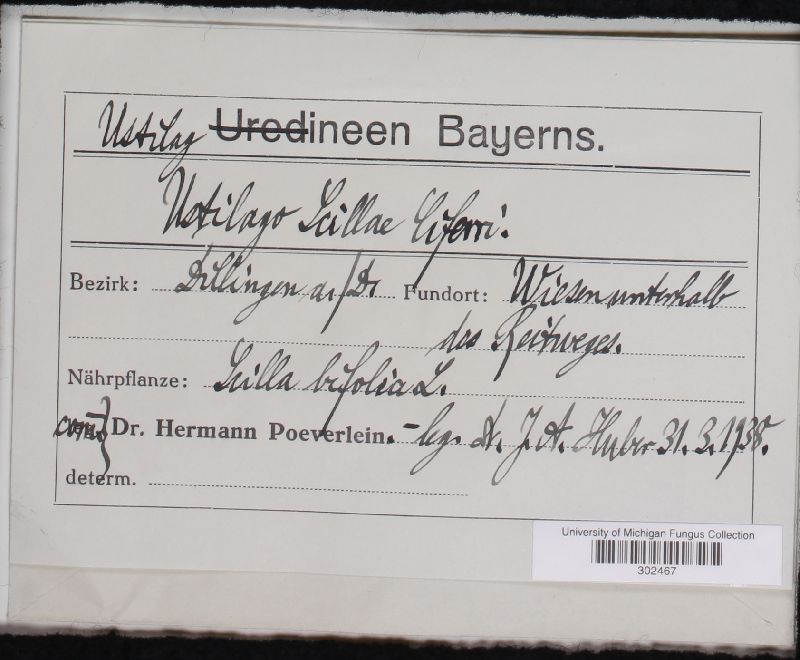 Ustilagineen Bayerns.
Ustilago Scillae Ciferri.
Bezirk: Dillingen a./D. Fundort: Wiesen unterhalb
des Reitweges.
Nährpflanze: Scilla bifolia L.
comm. Dr. Hermann Poeverlein. - leg. Dr. J. A. Huber 31. 3. 1938.
determ.
University of Michigan Fungus Collection
302467